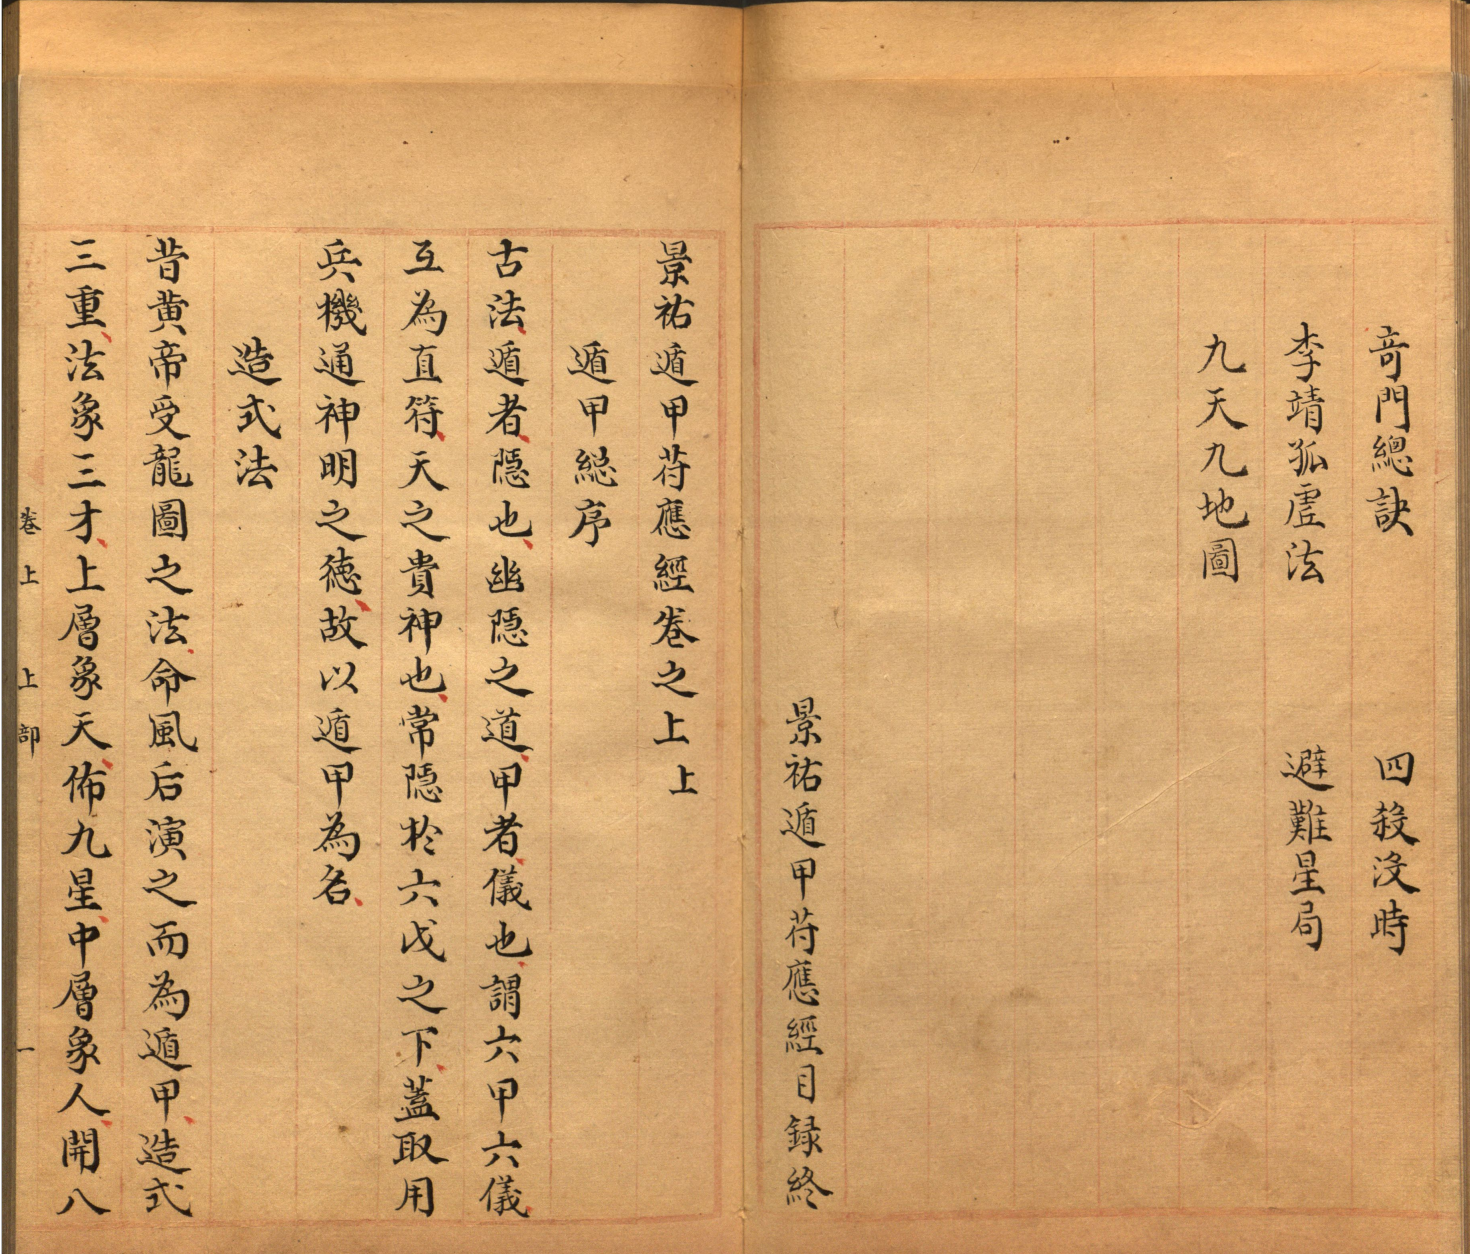 奇門總訣　四殺没時
李靖孤虛法　避難星局
九天九地圖
景祐遁甲苻應經目録終
景祐遁甲苻應經卷之上上
遁甲総序
古法、遁者、隱也、幽隱之道、甲者、儀也、謂六甲六儀、
互為直符、天之貴神也、常隱於六戊之下、葢取用
兵機通神明之徳、故以遁甲為名、
造式法
昔黄帝受龍圖之法、命風后演之而為遁甲、造式
三重、法象三才、上層象天、佈九星、中層象人、開八
卷上　上部　一